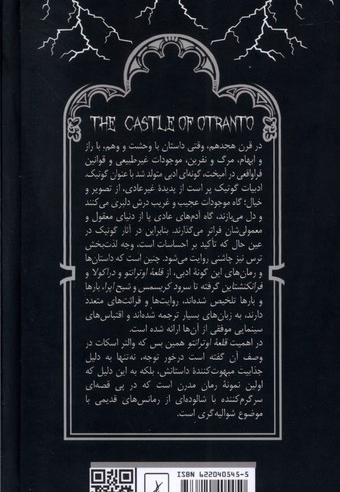 THE CASTLE OF OTRANTO
در قرن هجدهم، وقتی داستان با وحشت و وهم، با راز
و ابهام، مرگ و نفرین، موجودات غیرطبیعی و قوانین
فراواقعی درآمیخت، گونه‌ای ادبی متولد شد با عنوان گوتیک.
ادبیات گوتیک پر است از پدیدهٔ غیرعادی، از تصویر و
خیال؛ گاه موجودات عجیب و غریب درش دلبری می‌کنند
و دل می‌بازند، گاه آدم‌های عادی پا از دنیای معقول و
معمولی‌شان فراتر می‌گذارند. بنابراین در آثار گوتیک در
عین حال که تأکید بر احساسات است، وجه لذت‌بخش
ترس نیز چاشنی روایت می‌شود. چنین است که داستان‌ها
و رمان‌های این گونهٔ ادبی، از قلعهٔ اوترانتو و دراکولا و
فرانکنشتاین گرفته تا سرود کریسمس و شبح اپرا، بارها
و بارها تلخیص شده‌اند، روایت‌ها و قرائت‌های متعدد
دارند، به زبان‌های بسیار ترجمه شده‌اند و اقتباس‌های
سینمایی موفقی از آن‌ها ارائه شده است.
در اهمیت قلعهٔ اوترانتو همین بس که والتر اسکات در
وصف آن گفته است درخور توجه، نه‌تنها به دلیل
جذابیت مبهوت‌کنندهٔ داستانش، بلکه به این دلیل که
اولین نمونهٔ رمان مدرن است که در پی قصه‌ای
سرگرم‌کننده با شالوده‌ای از رمانس‌های قدیمی با
موضوع شوالیه‌گری است.
ISBN 622040545-5